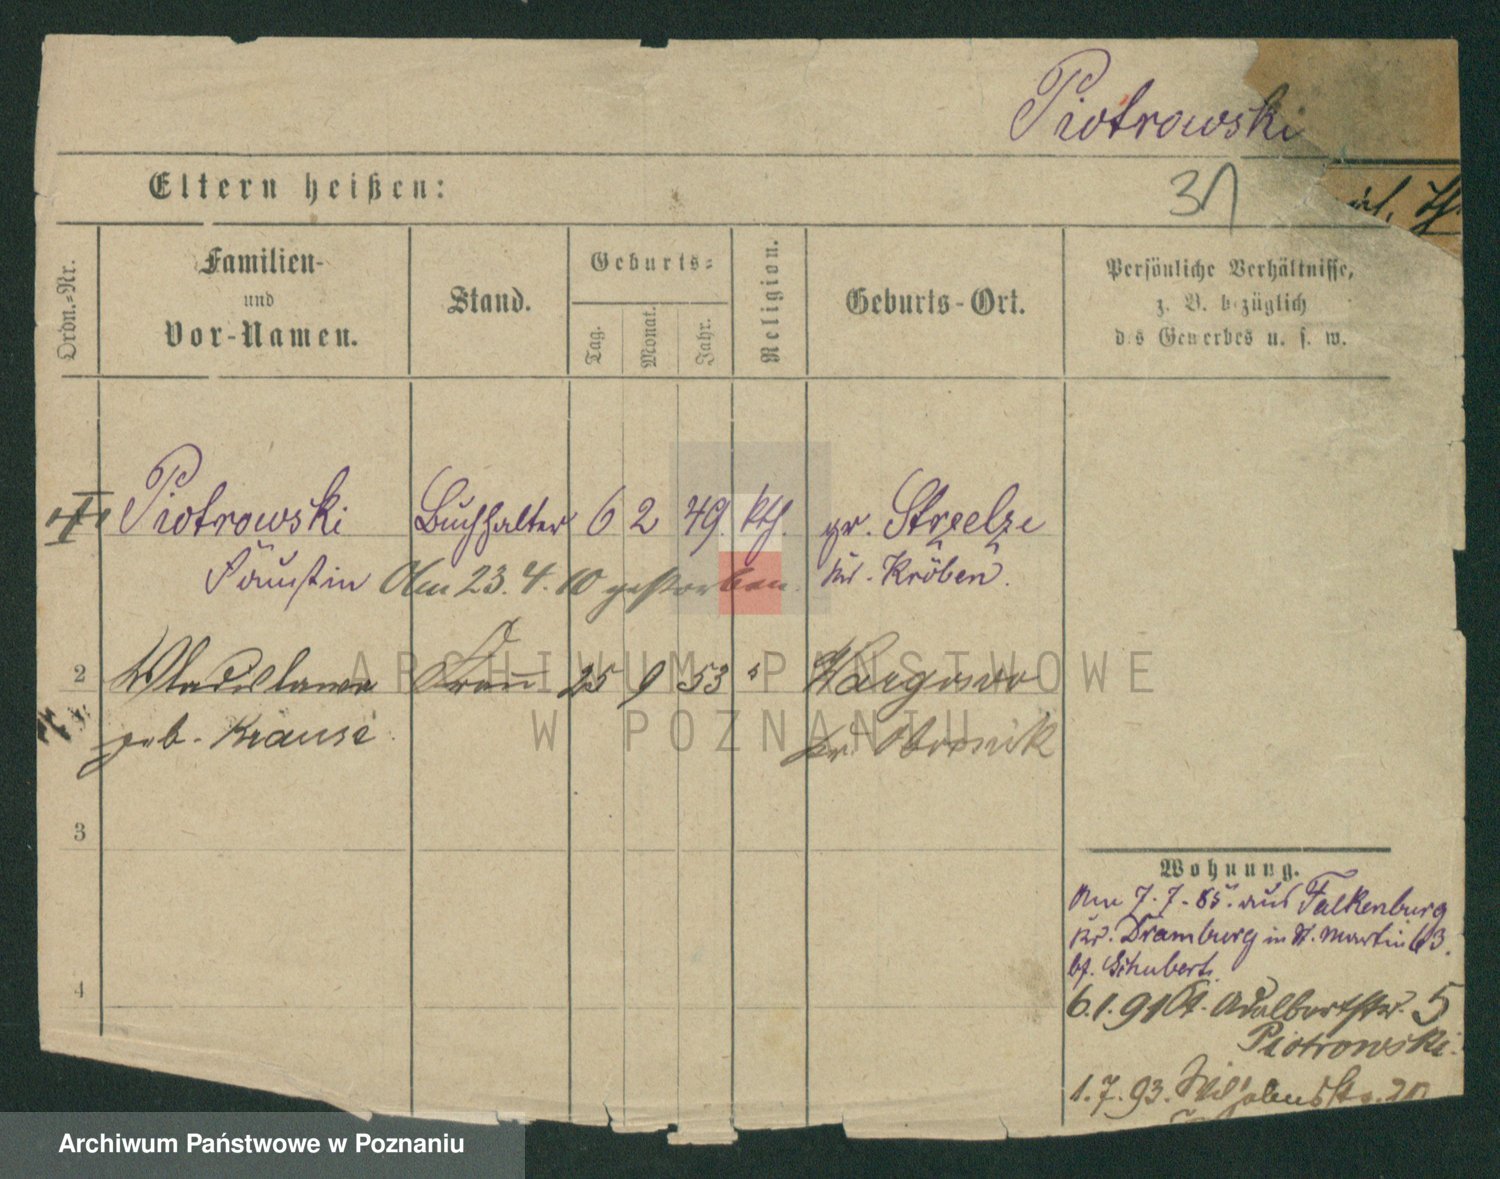 Piotrowski
Eltern heißen:
Ordn.-Nr.
Familien-
und
Vor-Namen.
Stand.
Geburts-
Tag.
Monat.
Jahr.
Religion.
Geburts-Ort.
Persönliche Verhältnisse,
z. B. bezüglich
des Gewerbes u. s. w.
Piotrowski Buchhalter 6 2 49. kth. gr. Strzelze
Faustin Am 23. 4. 10 gestorben. Kr. Kröben.
2 Wladislawa Frau 25 9 53 Wargowo
geb. Krause Kr. Obornik
3
4
Wohnung.
Am 7. 7. 85. aus Falkenburg
Kr. Dramburg in St. Martin 63.
bf. Schubert.
6.1.91 St. Adalbertstr. 5
Piotrowski.
1.7.93. Wilhelmstr. 20
ARCHIWUM PAŃSTWOWE
W POZNANIU
Archiwum Państwowe w Poznaniu